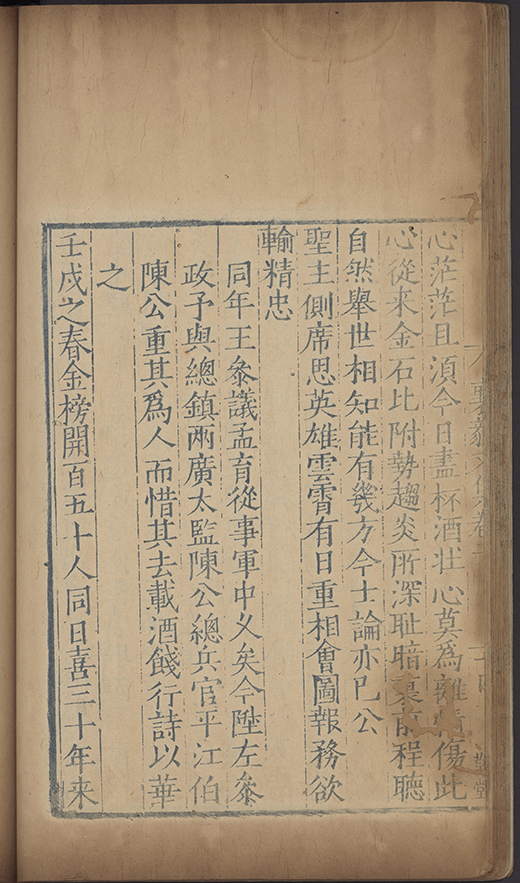 心茫茫且須今日盡杯酒壮心莫為離情傷此
心從来金石比附勢趨炎所深耻暗裏前程聽
自然舉世相知能有幾方今士論亦已公
聖主側席思英雄雲霄有日重相會圖報務欲
輸精忠
同年王叅議孟育從事軍中乆矣今陞左叅
政予與總鎮兩廣太監陳公總兵官平江伯
陳公重其爲人而惜其去載酒餞行詩以華
之
壬戍之春金榜開百五十人同日喜三十年来